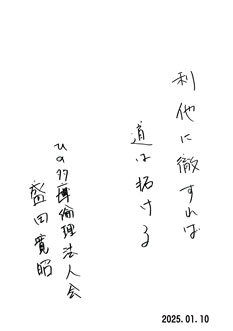 利他に徹すれば
道は拓ける
ひの多摩倫理法人会
盛田寛昭
2025.01.10